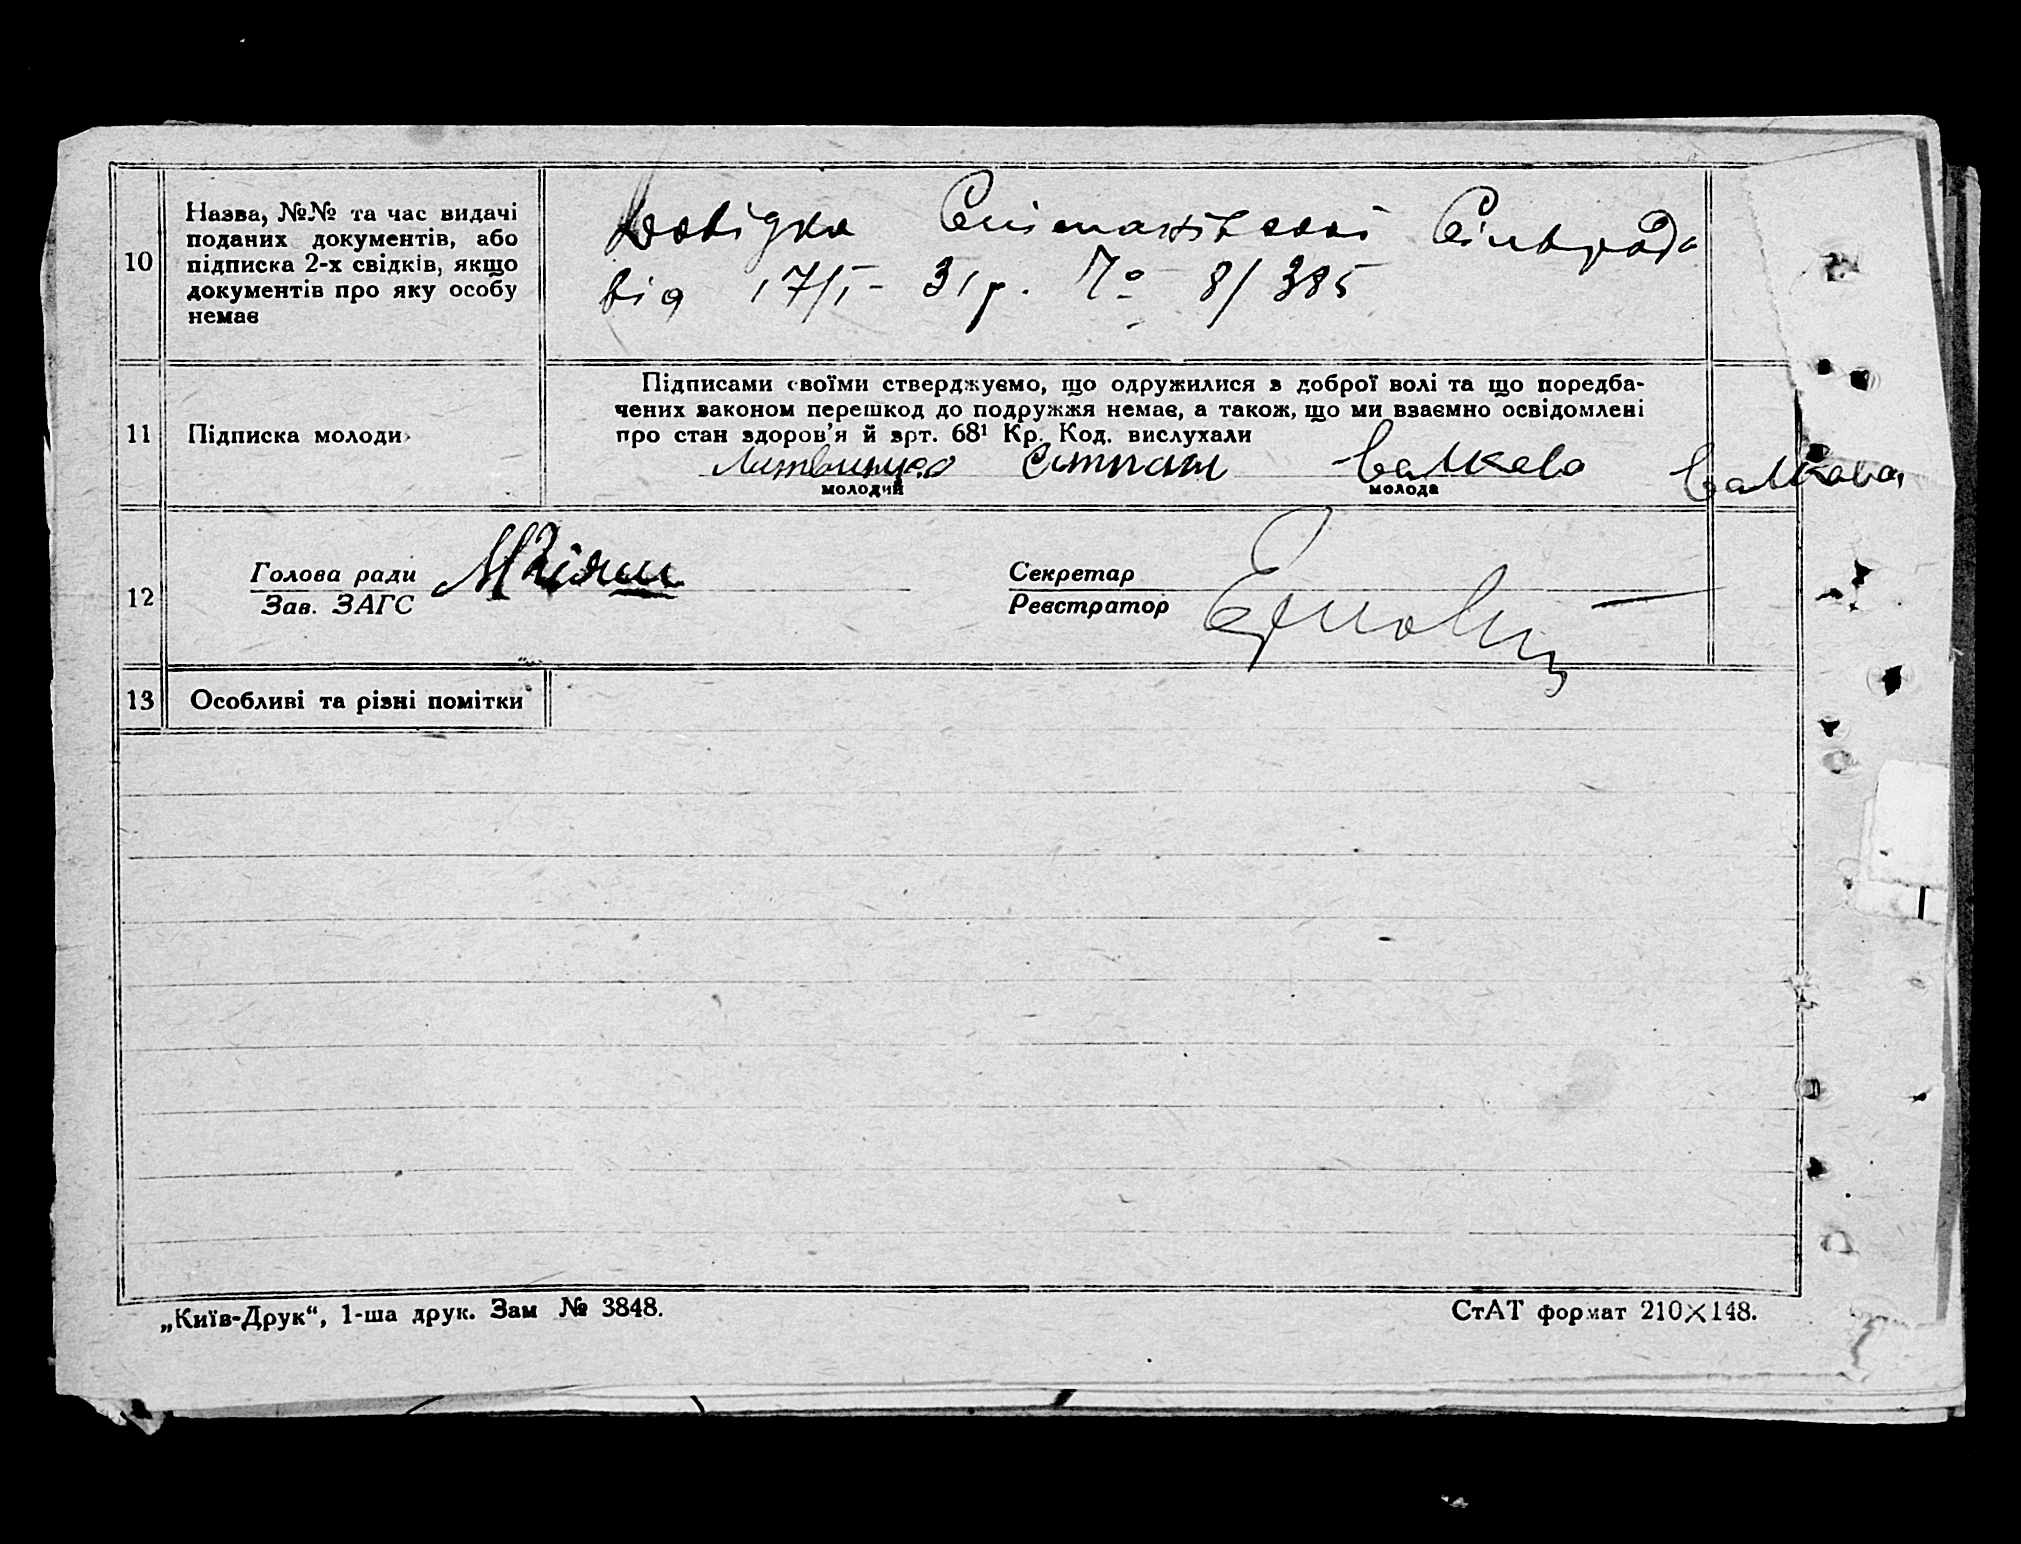 10
Назва, №№ та час видачі
поданих документів, або
підписка 2-х свідків, якщо
документів про яку особу
немає
Довідка Сільрада
від 17/I - 31 р. № 8/385
11
Підписка молодих
Підписами своїми стверджуємо, що одружилися з доброї волі та що поредба-
чених законом перешкод до подружжя немає, а також, що ми взаємно освідомлені
про стан здоров'я й арт. 68¹ Кр. Код. вислухали
Литвинуко Степан
молодий
молода
12
Голова ради
Зав. ЗАГС
Секретар
Реєстратор
13
Особливі та різні помітки
„Київ-Друк“, 1-ша друк. Зам № 3848.
СтАТ формат 210×148.